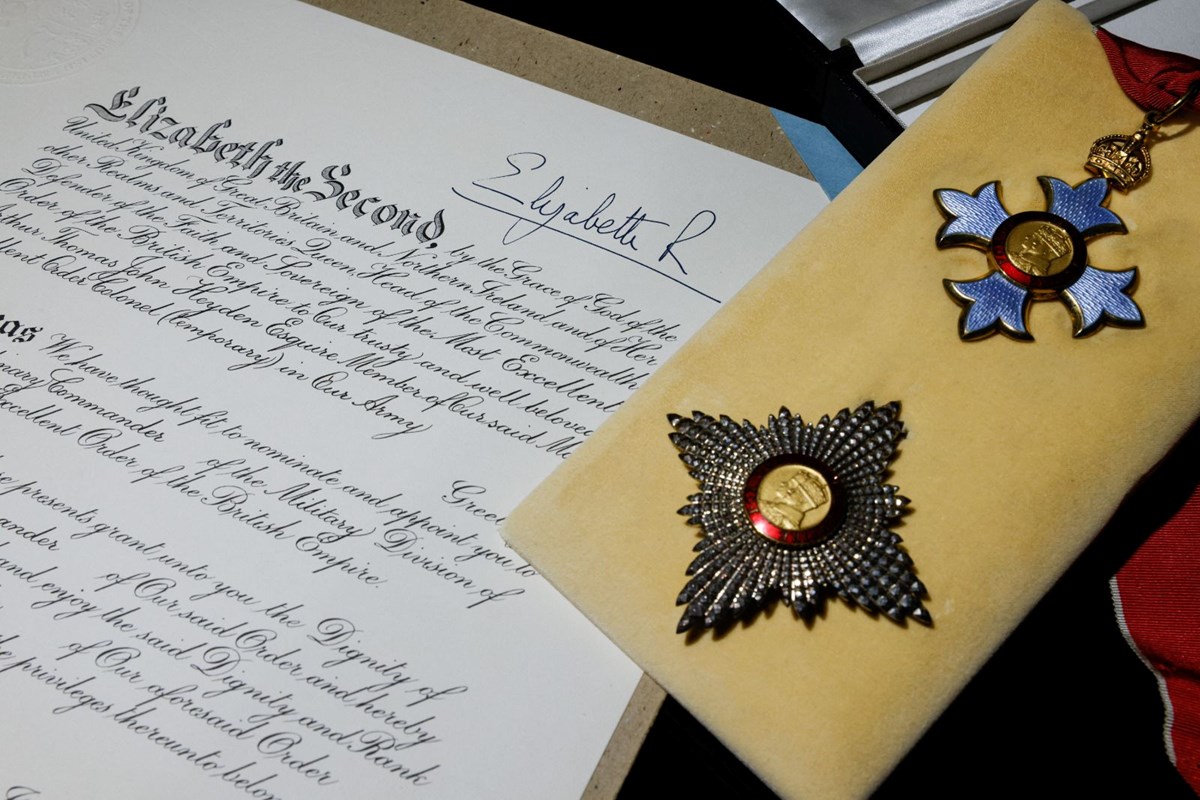 Elizabeth R
Elizabeth the Second, by the Grace of God of the
United Kingdom of Great Britain and Northern Ireland and of Her
other Realms and Territories Queen, Head of the Commonwealth,
Defender of the Faith and Sovereign of the Most Excellent
Order of the British Empire to Our trusty and well beloved
Thomas John Heyden Esquire Member of Our said
Order Colonel (temporary) in Our Army
Greet
We have thought fit to nominate and appoint you to
Commander of the Military Division of
Excellent Order of the British Empire.
presents grant unto you the Dignity of
of Our said Order and hereby
and enjoy the said Dignity and Rank
of Our aforesaid Order
privileges thereunto belon